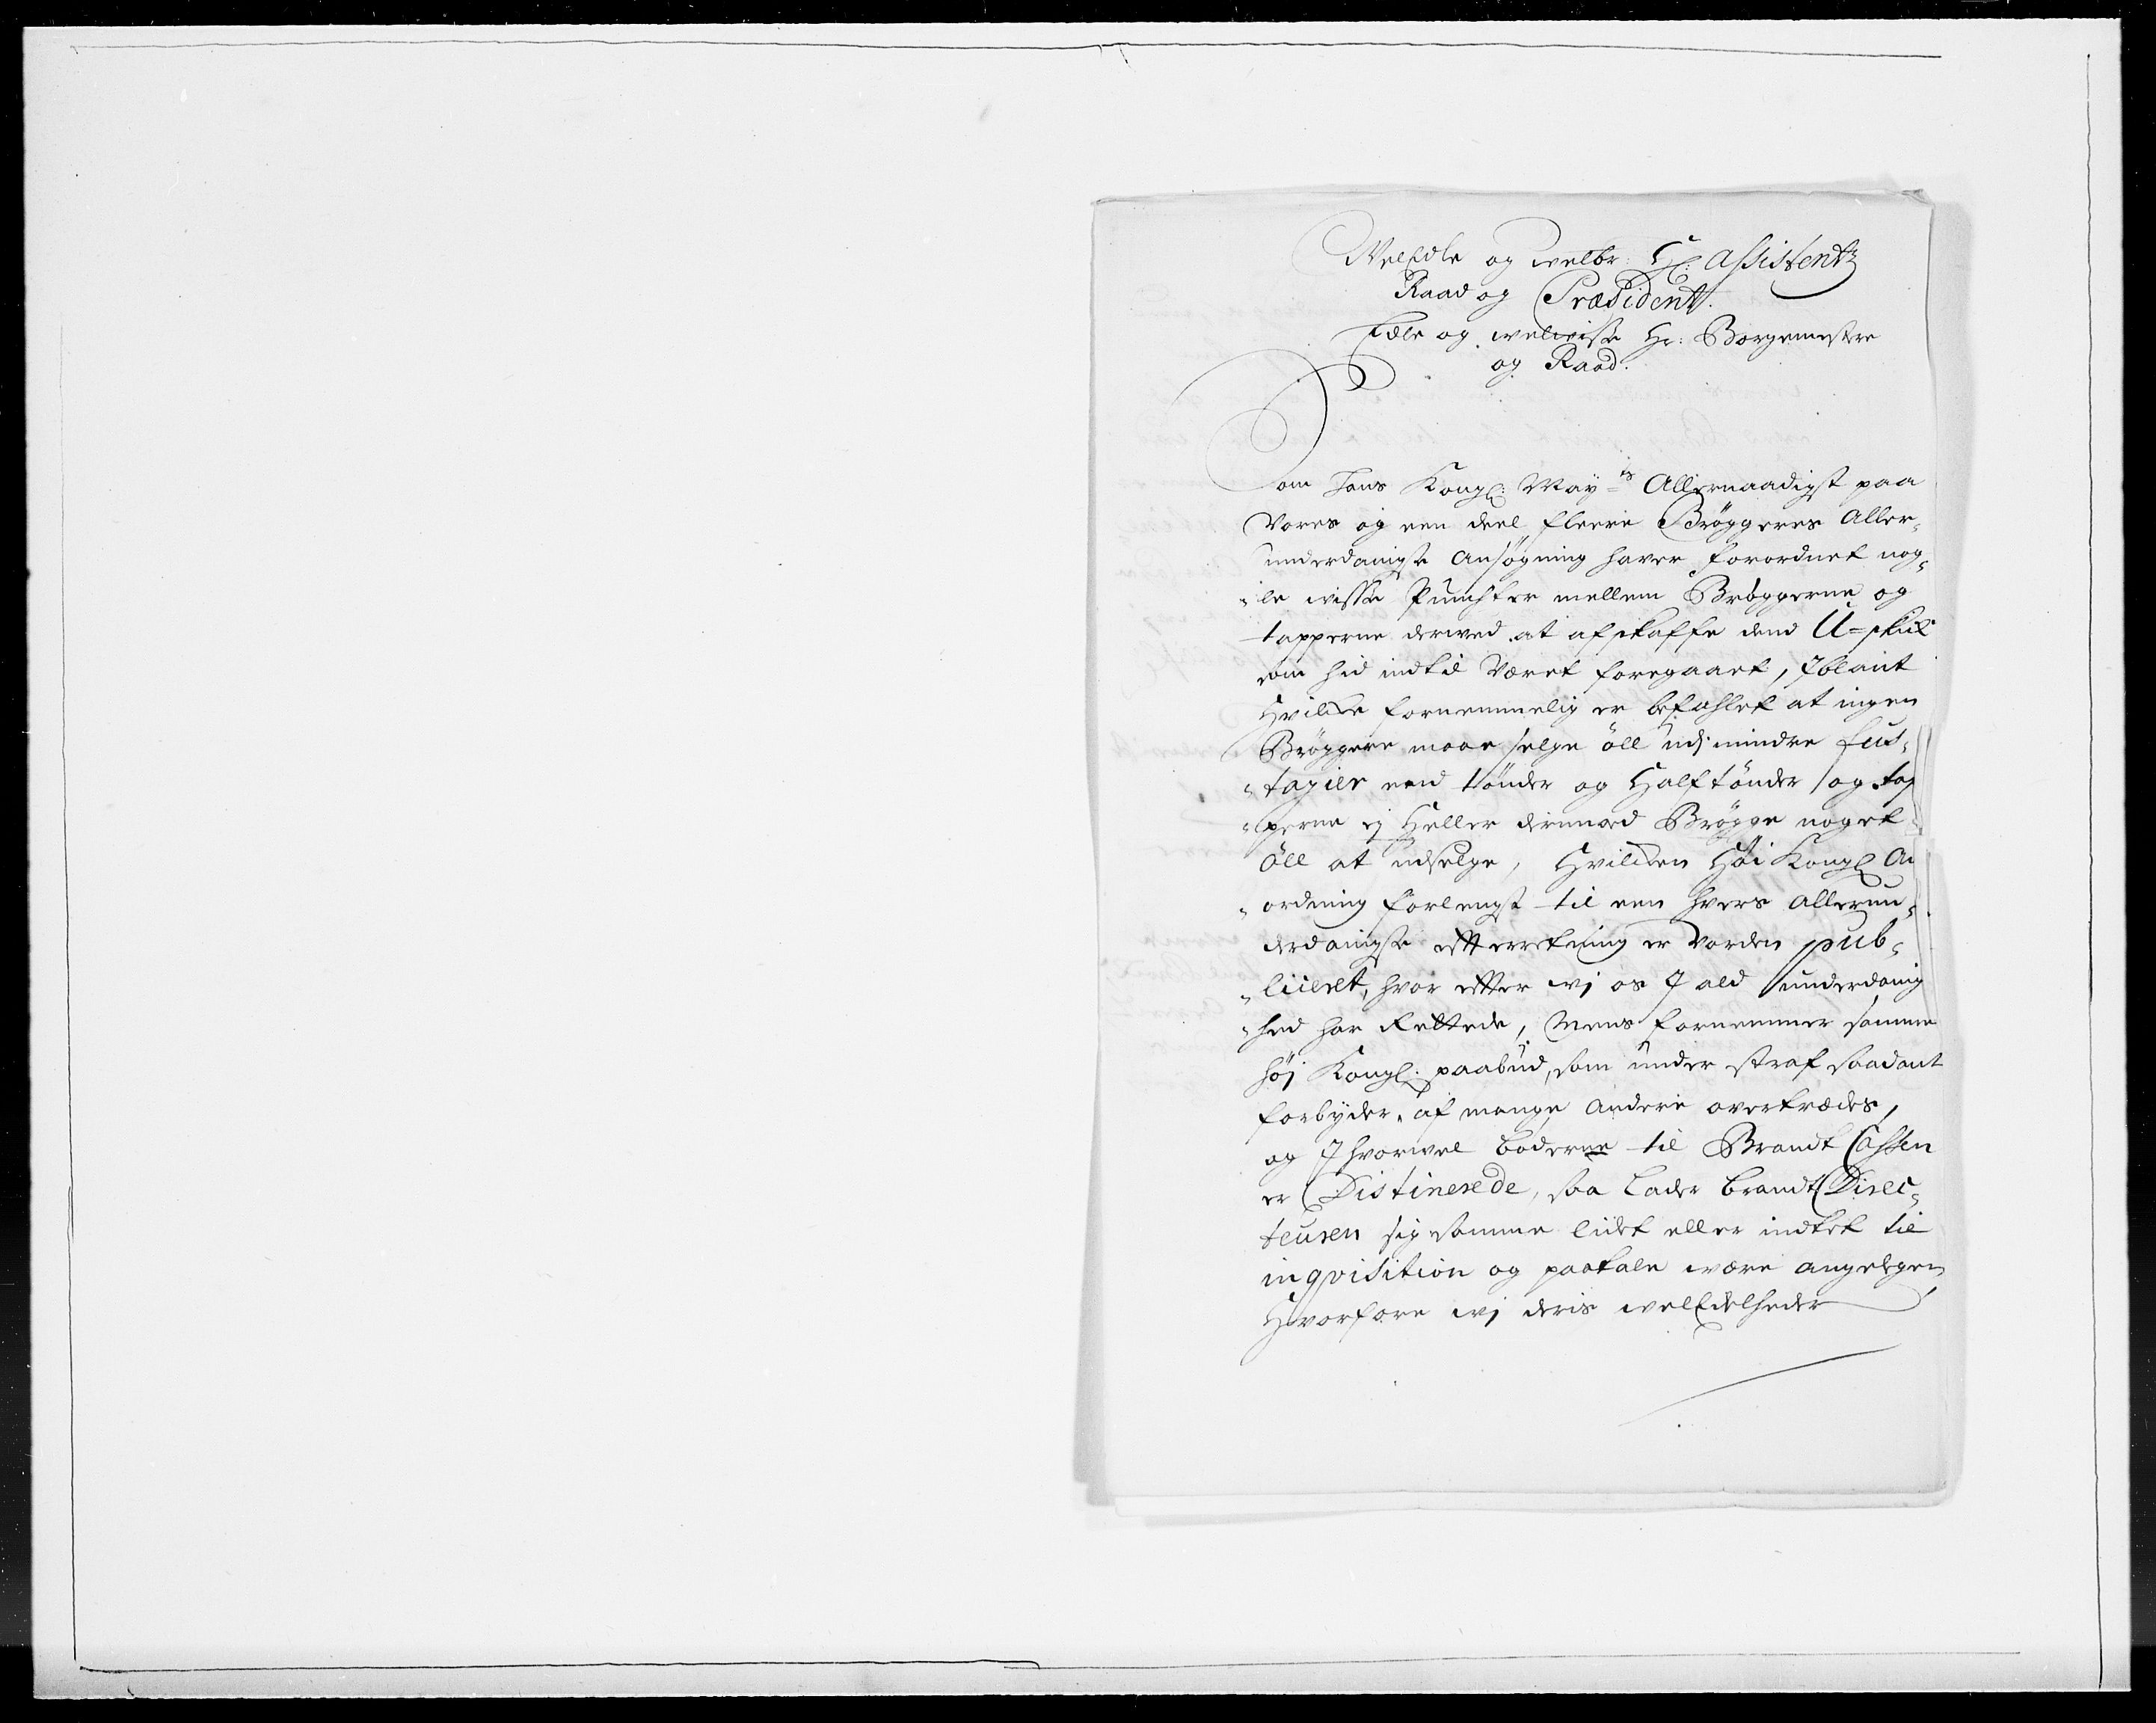 WelEdle og welbr: Hr: Assistentz
Raad og Præsident.
Edle og welvisse Hr: Borgemestere
og Raad.
Som Hans Kongl: May:ts Allernaadigst paa
Vores og een deel fleere Bröggeres Aller-
underdanigste Ansögning haver forordnet nog-
le visse Puncter mellem Bröggerne og
tapperne derved at afskaffe dend U-skik
som hid indtil Været foregaaet, Iblant
Hvilcke fornemmelig er befahlet at ingen
Bröggere maae selge öll ud i mindre fus-
tagier end tönder og Halftönder og tap
perne ej Heller dermed Brögge noget
öll at udselge, Hvilcken Höi Kongl An
ordning forlengst til een hvers Allerun-
derdanigste efterretning er Vorden pub-
liceret, hvor efter wj os I ald underdanig
hed har Rettede, Mens fornemmer samme
höj Kongl: paabud, som under straf saadant
forbyder, af mange Andere overtrædes,
og Ihvorvel böderne til Brandt Cassen
er Distinerede, saa Lader Brandt Direc-
teuren sig samme lidet eller indtet til
inqvisition og paatale være angelegen
Hvorfore wj deris welEdelheder